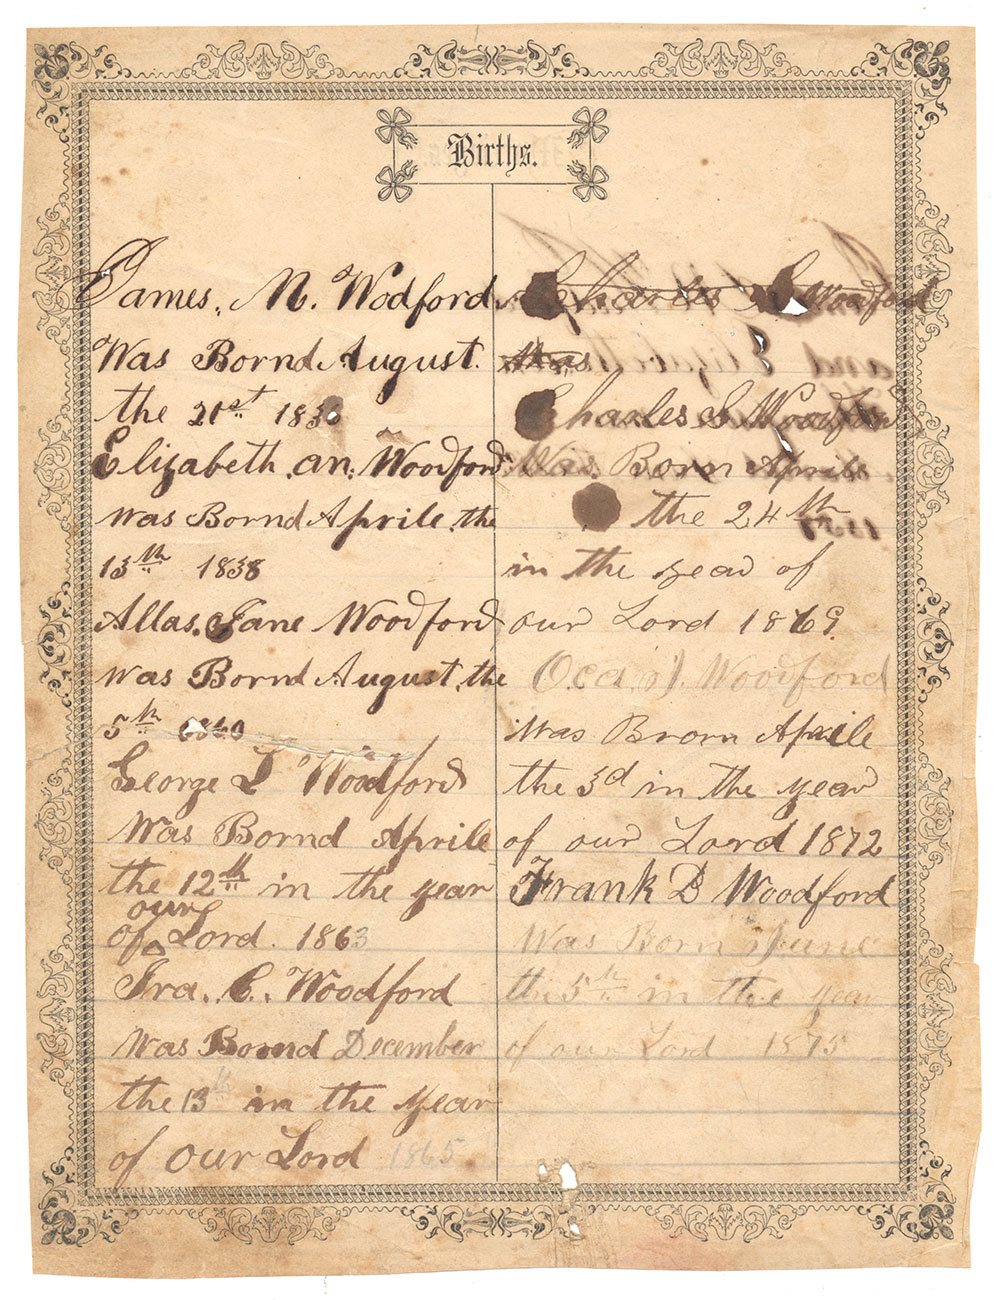 Births.
James. M. Wodford
Was Bornd August.
the 21st 1836
Elizabeth. an. Woodford
was Bornd Aprile. the
13th 1838
Allas. Jane Woodford
was Bornd August. the
5th 1860
George L Woodford
Was Bornd Aprile
the 12th in the year
our
of Lord. 1863
Ira. C. Woodford
was Bornd December
the 13th in the year
of our Lord 1865
Charles S Woodford
Was
Charles S Woodford
Was. Born Aprile
the 24th
in the year of
our Lord 1869.
Oca. J. Woodford
was Brom Aprile
the 3d in the year
of our Lord 1872
Frank D Woodford
Was Born June
the 5th in the year
of our Lord 1875